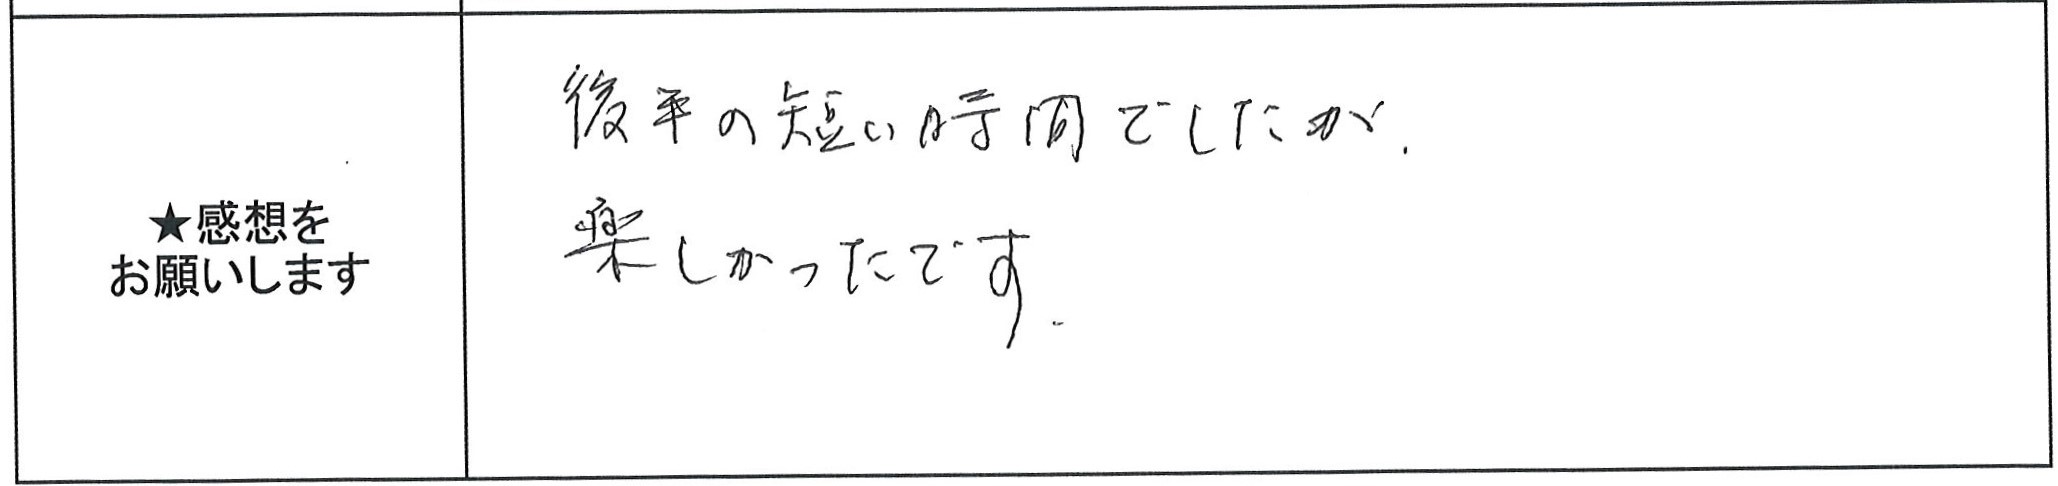 ★感想を
お願いします
後半の短い時間でしたが.
楽しかったです.